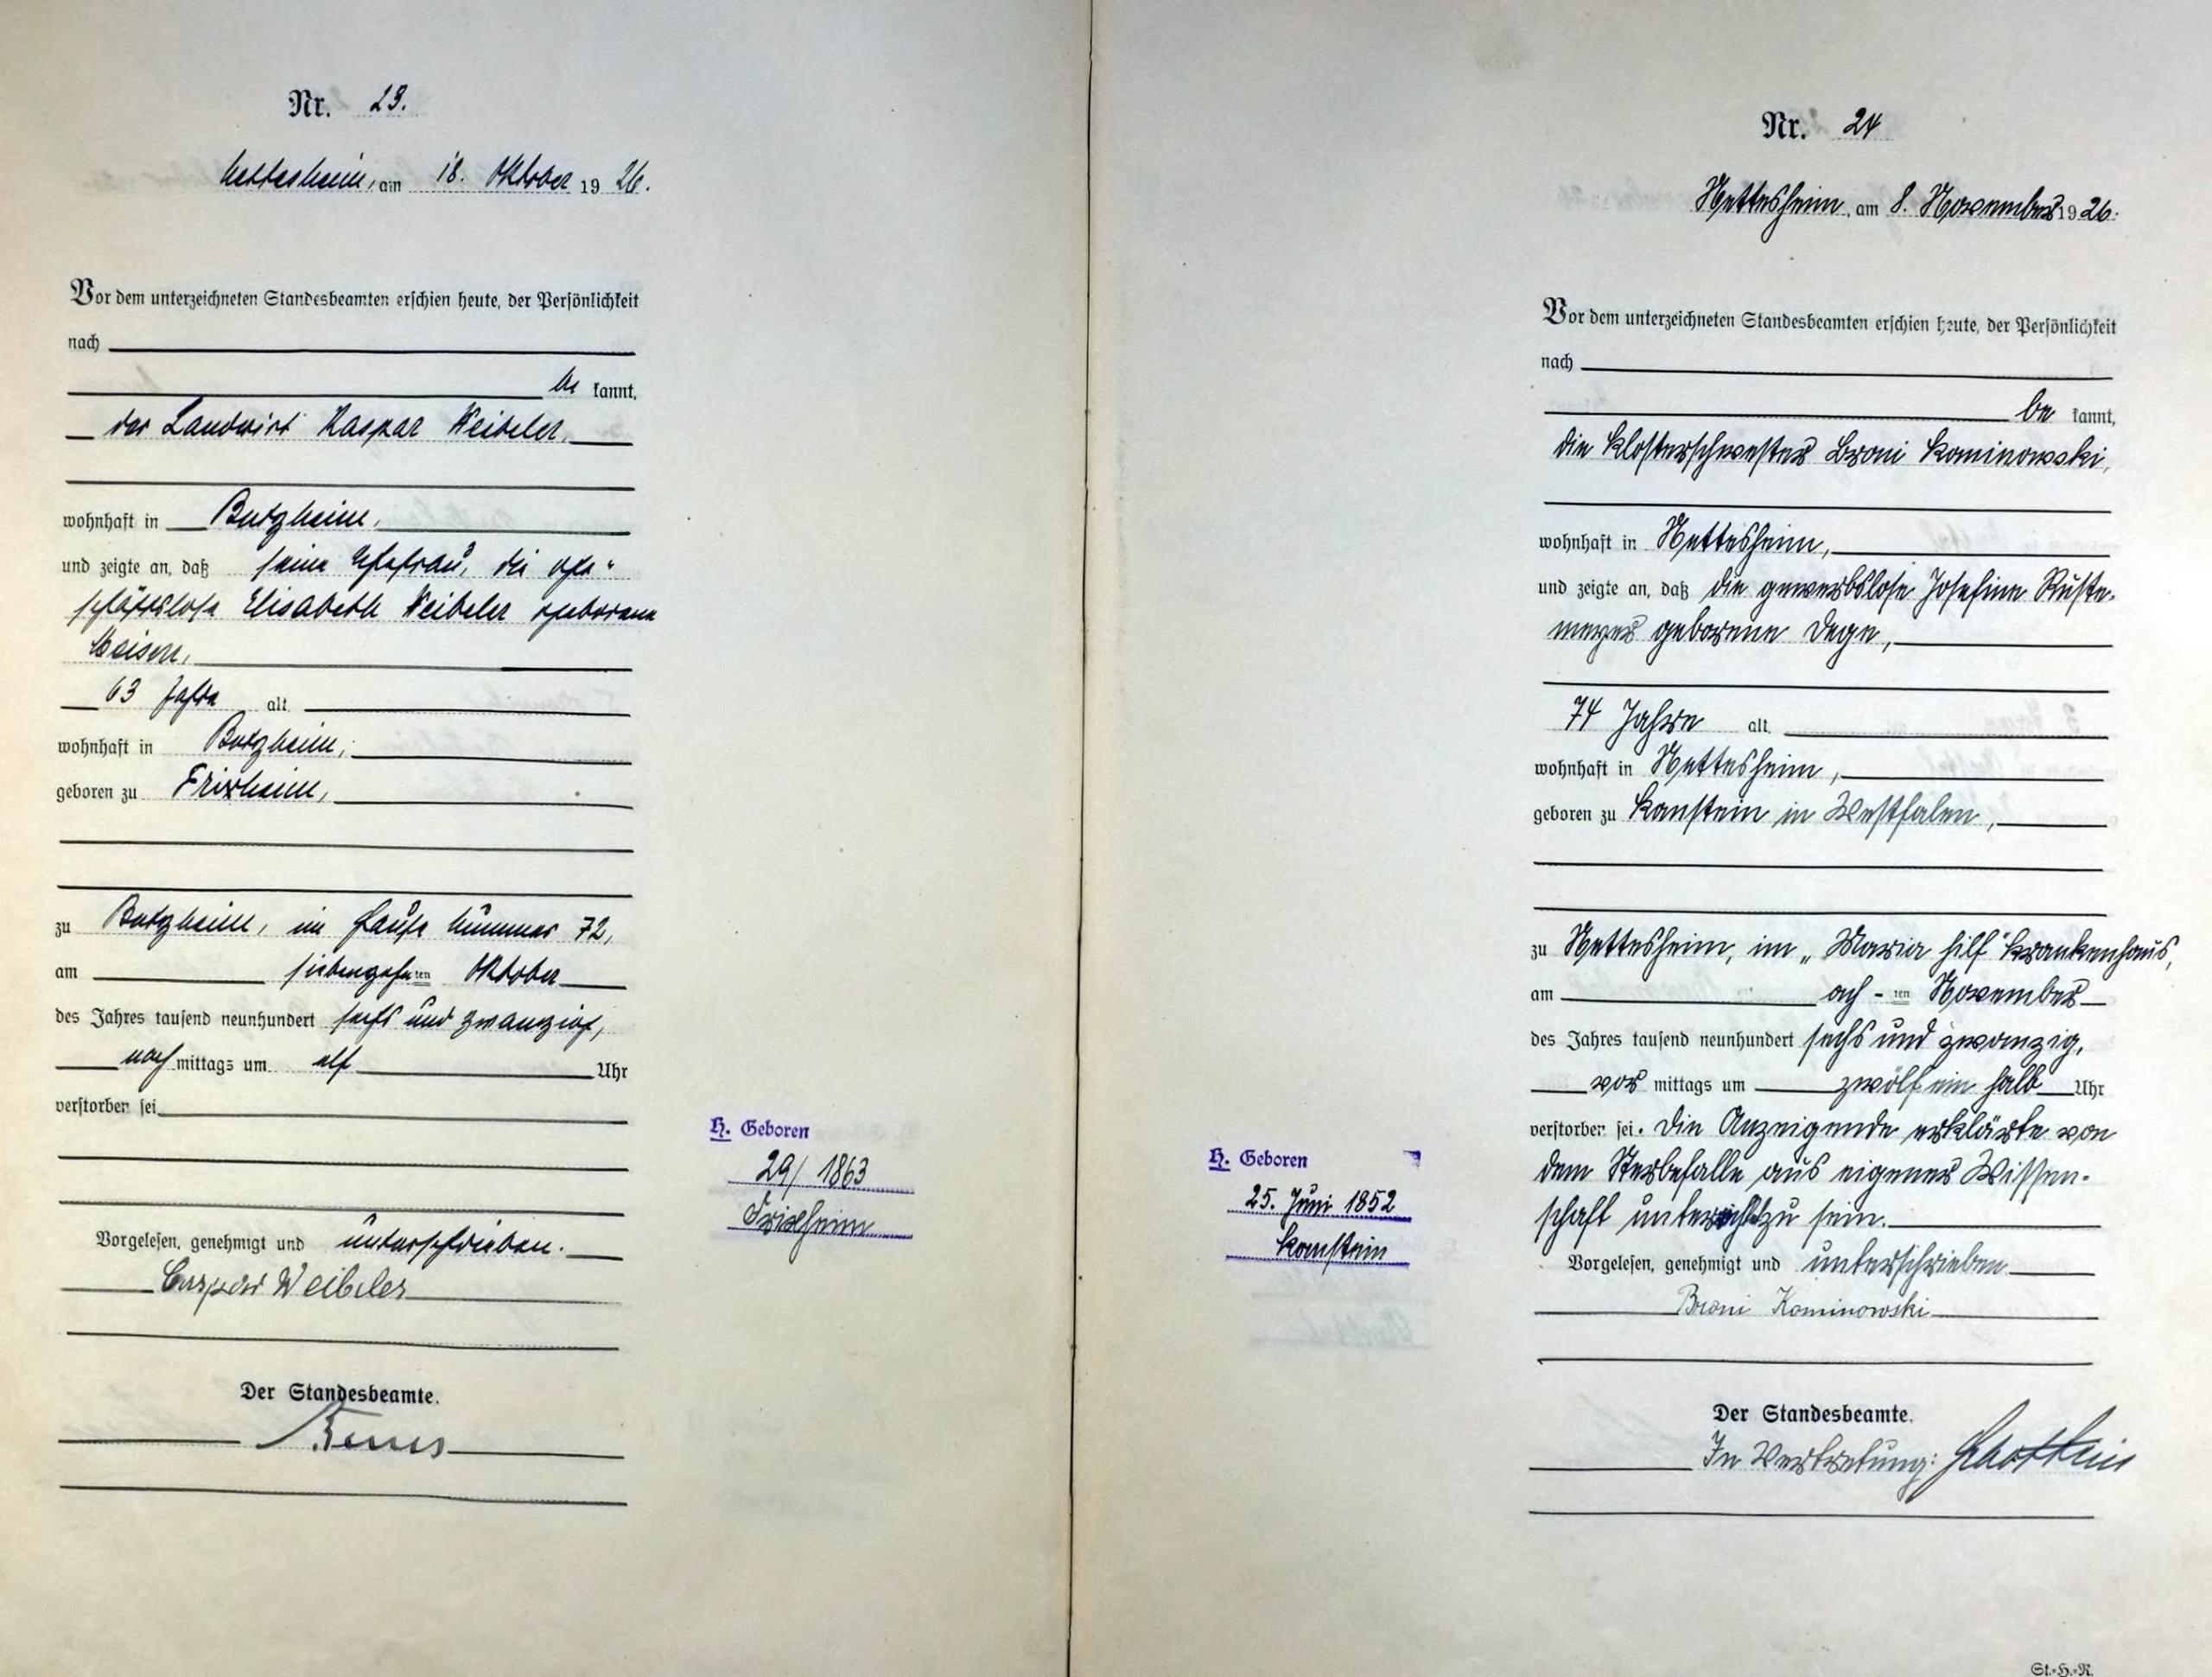 Nr. 23.
Nettesheim, am 18. Oktober 1926.
Vor dem unterzeichneten Standesbeamten erschien heute, der Persönlichkeit
nach
be kannt,
der Landwirt Kaspar Weibeler,
wohnhaft in Butzheim,
und zeigte an, daß seine Ehefrau, die ge-
schäftslose Elisabeth Weibeler geborene
63 Jahre alt
wohnhaft in Butzheim,
geboren zu Frixheim,
zu Butzheim, im Hause Nummer 72,
am siebenzehnten Oktober
des Jahres tausend neunhundert sechs und zwanzig,
nach mittags um elf Uhr
verstorben sei
Vorgelesen, genehmigt und unterschrieben.
Caspar Weibeler
Der Standesbeamte.
H. Geboren
29/ 1863
Frixheim
Nr. 24
Nettesheim, am 8. November 1926.
Vor dem unterzeichneten Standesbeamten erschien heute, der Persönlichkeit
nach
be kannt,
die Klosterschwester Broni Kominowski,
wohnhaft in Nettesheim,
und zeigte an, daß die gewerbslose Josefine Ruste-
meyer geborene Dege,
74 Jahre alt
wohnhaft in Nettesheim,
geboren zu Kanstein in Westfalen,
zu Nettesheim, im „Maria hilf" Krankenhaus,
am ach-ten November
des Jahres tausend neunhundert sechs und zwanzig,
vor mittags um zwölf ein halb Uhr
verstorben sei. Die Anzeigende erklärte von
dem Sterbefalle aus eigener Wissen-
schaft unterrichtet zu sein.
Vorgelesen, genehmigt und unterschrieben
Broni Kominowski
Der Standesbeamte.
In Vertretung:
H. Geboren
25. Juni 1852
Kanstein
St.-H.-R.